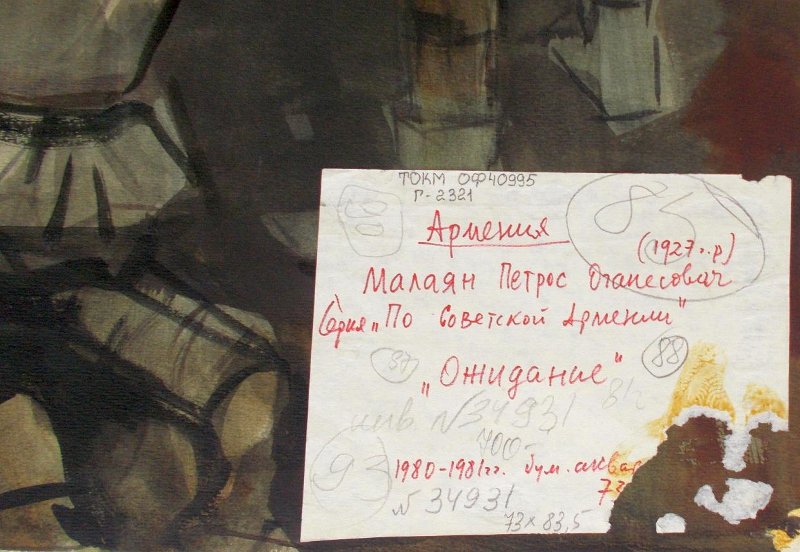 ТОКМ ОФ40995
Г-2321
90
85
Армения
(1927 г.р)
Малаян Петрос Оганесович
Серия „По Советской Армении"
37
88
„Ожидание"
инв. №34931
700-
93
1980-1981 гг. бум. аквар
73
№ 34931
73 x 83,5